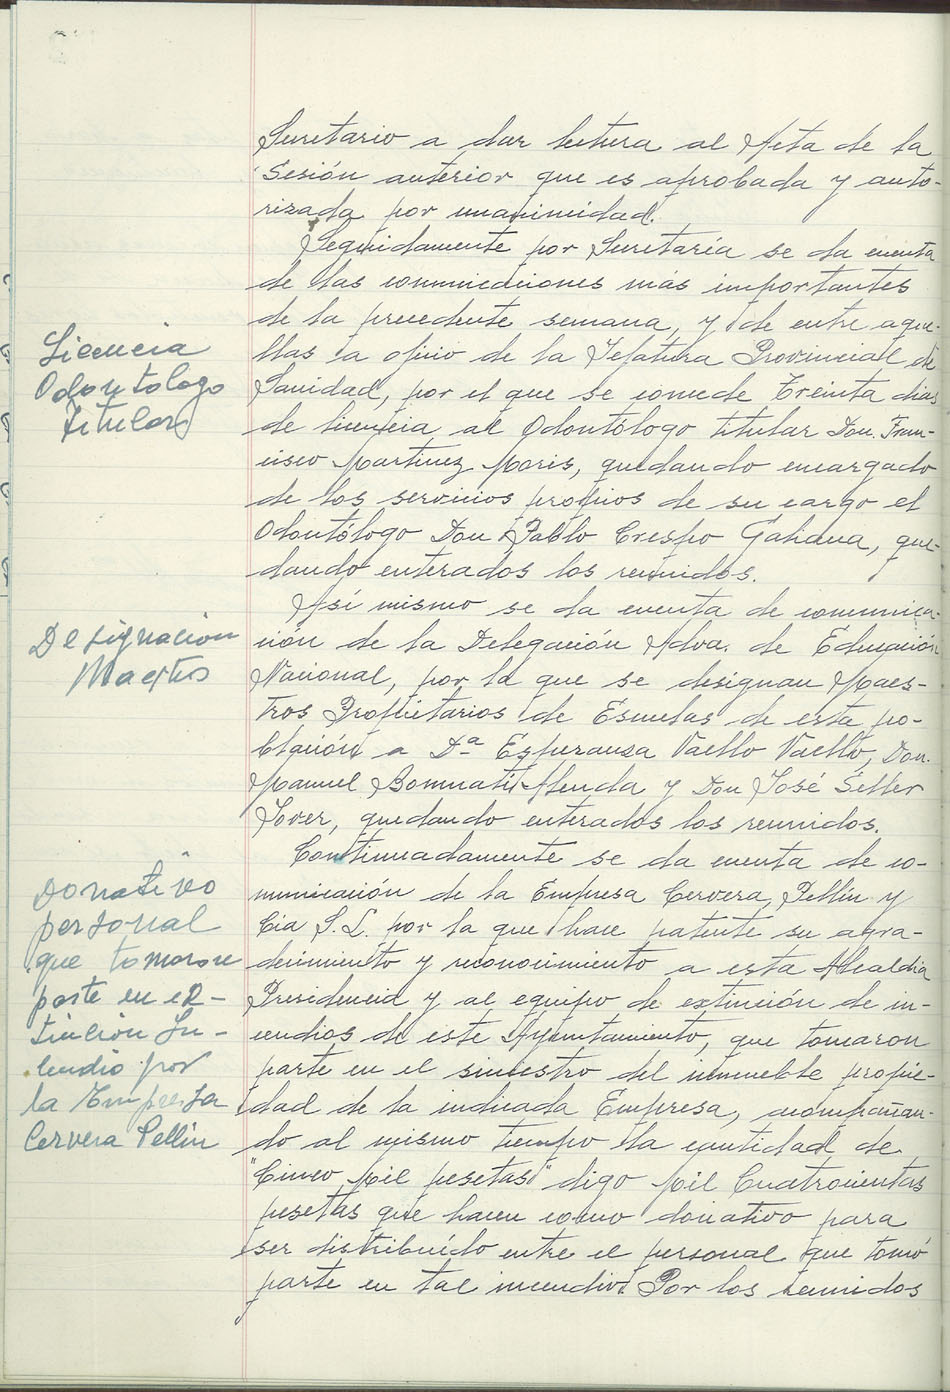 Secretario a dar lectura al Acta de la
Sesión anterior que es aprobada y auto-
rizada por unanimidad.
Seguidamente por Secretaría se da cuenta
de las comunicaciones más importantes
de la precedente semana, y de entre aque-
llas la oficio de la Jefatura Provincial de
Licencia
Odontologo
Titular
Sanidad, por el que se concede Treinta dias
de licencia al Odontólogo titular Don. Fran-
cisco Martinez Moris, quedando encargado
de los servicios propios de su cargo el
Odontólogo Don Pablo Crespo Gahana, que-
dando enterados los reunidos.
Así mismo se da cuenta de comunica-
Designacion
Maestros
ción de la Delegación Adva. de Educación
Nacional, por la que se designan Maes-
tros Propietarios de Escuelas de esta po-
blación a Dª Esperanza Vaello Vaello, Don.
Manuel Bomnatí Menda y Don José Seller
Jover, quedando enterados los reunidos.
Continuadamente se da cuenta de co-
Donativo
personal
que tomaron
parte en ex-
tinción In-
cendio por
la Empresa
Cervera Pellin
municación de la Empresa Cervera, Pellín y
Cía S.L. por la que hace patente su agra-
decimiento y reconocimiento a esta Alcaldia
Presidencia y al equipo de extinción de in-
cendios de este Ayuntamiento, que tomaron
parte en el siniestro del inmueble propie-
dad de la indicada Empresa, acompañan-
do al mismo tiempo la cantidad de
"Cinco mil pesetas" digo mil Cuatrocientas
pesetas que hacen como donativo para
ser distribuído entre el personal que tomó
parte en tal incendio. Por los reunidos